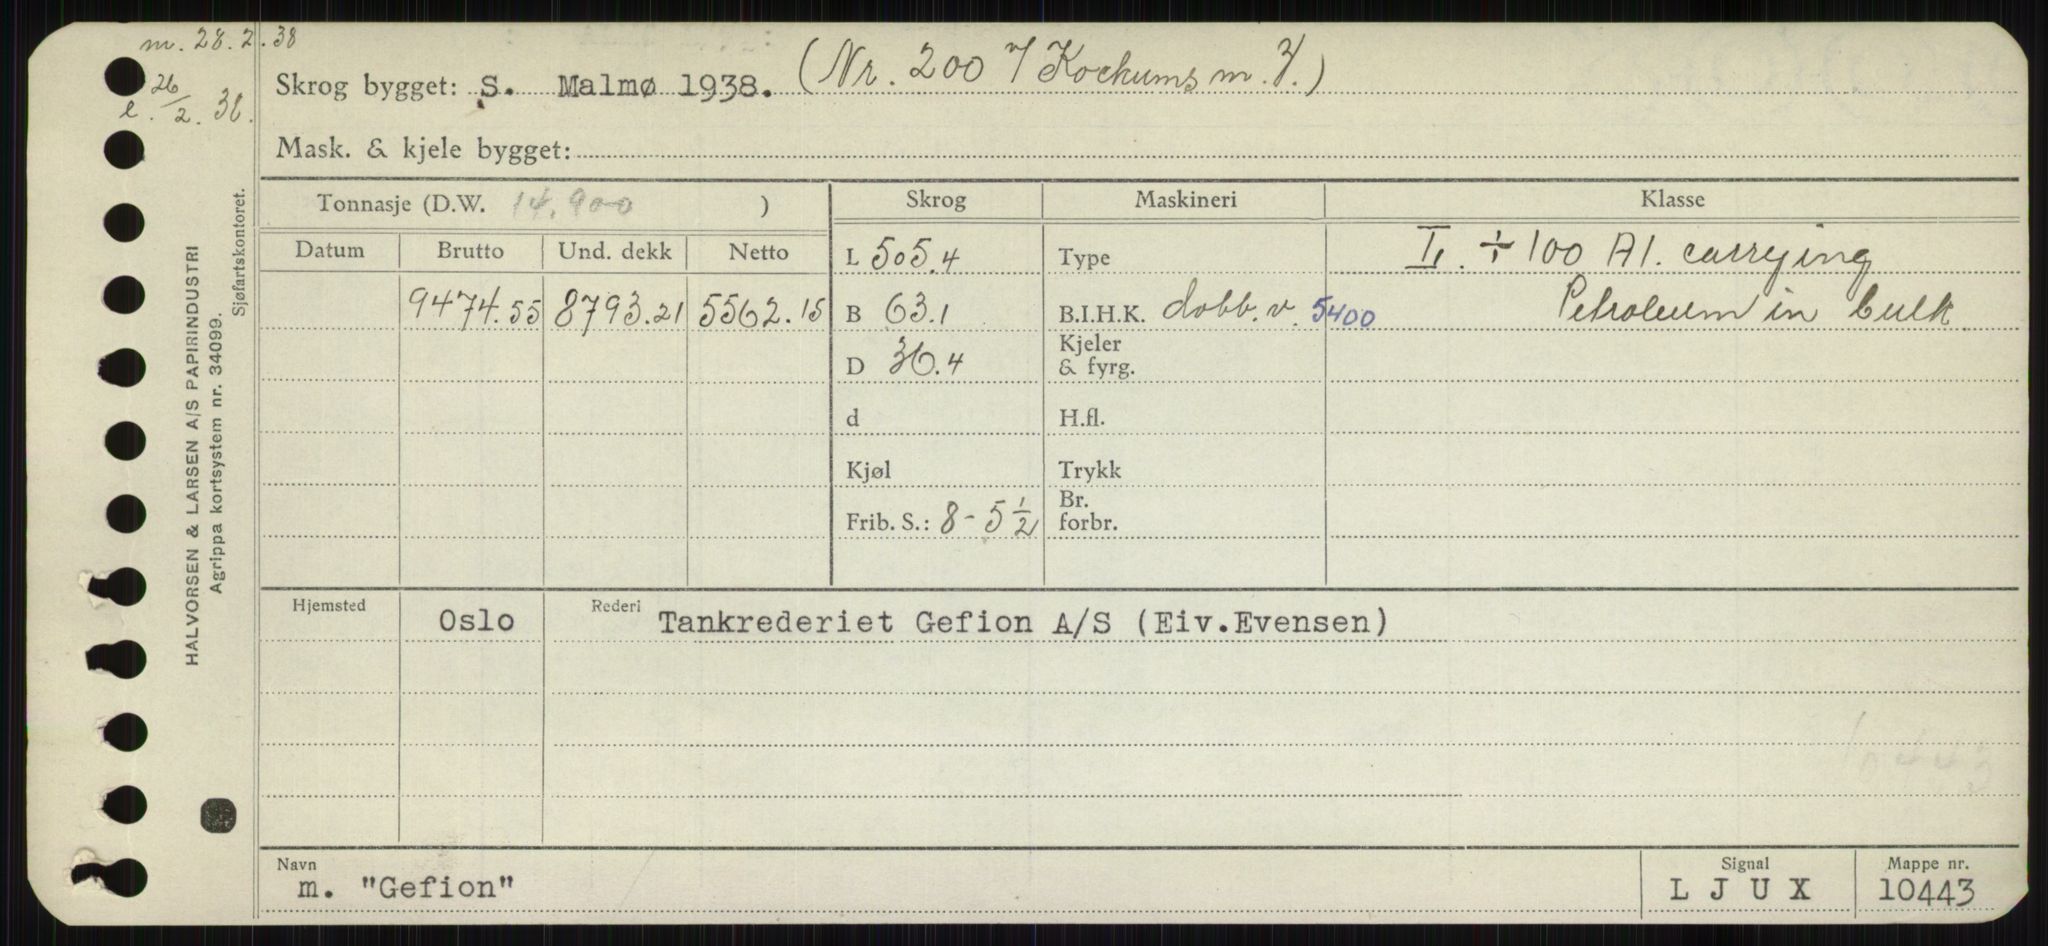 m. 28.2.38
l. 26/2. 38.
Skrog bygget: S. Malmø 1938. (Nr. 200 v/ Kockums m. V.)
Mask. & kjele bygget:
Tonnasje (D.W. 14.900 )
Skrog
Maskineri
Klasse
Datum
Brutto
Und. dekk
Netto
9474.55
8793.21
5562.15
L 505.4
B 63.1
D 36.4
d
Kjøl
Frib. S.: 8 - 5 1/2
Type
B.I.H.K. dobb. v. 5400
Kjeler
& fyrg.
H.fl.
Trykk
Br.
forbr.
÷ 100 A1. carrying
Petroleum in bulk
Hjemsted
Oslo
Rederi
Tankrederiet Gefion A/S (Eiv.Evensen)
10443
Navn
m. "Gefion"
Signal
L J U X
Mappe nr.
10443
HALVORSEN & LARSEN A/S PAPIRINDUSTRI
Agrippa kortsystem nr. 34099.
Sjøfartskontoret.